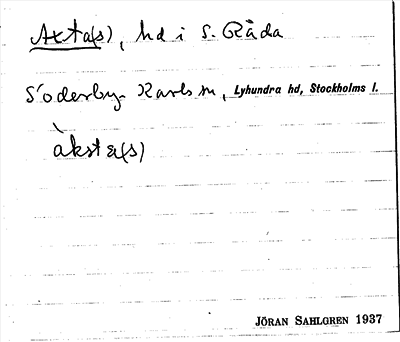 Axta(s), hd i S. Råda
Söderby-Karls sn, Lyhundra hd, Stockholms l.
àksta(s)
JÖRAN SAHLGREN 1937